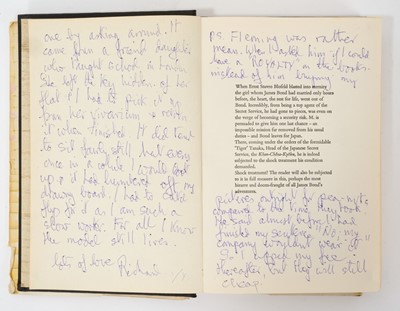 one by asking around. It
came from a friend's daughter
who taught school in London.
She left the key hidden of her
flat & I had to pick it up
from her vivarium & return
it when finished. It did tend
to sit fairly still, but every
once in a while I would look
up & it had lumbered off my
drawing board. I had to
stop for it as I am such a
slow worker. For all I know
the model still lives.
Lots of love Richard
P.S. Fleming was rather
mean. When I asked him if I could
have a ROYALTY on the books
instead of him buying my
When Ernst Stavro Blofeld blasted into eternity
the girl whom James Bond had married only hours
before, the heart, the zest for life, went out of
Bond. Incredibly, from being a top agent of the
Secret Service, he had gone to pieces, was even on
the verge of becoming a security risk. M. is
persuaded to give him one last chance – an
impossible mission far removed from his usual
duties – and Bond leaves for Japan.
There, coming under the orders of the formidable
"Tiger" Tanaka, Head of the Japanese Secret
Service, the Koan-Chosa-Kyoku, he is indeed
subjected to the shock treatment his condition
demanded.
Shock treatment? The reader will also be subjected
to it in full measure in this, perhaps the most
bizarre and doom-fraught of all James Bond's
adventures.
pictures outright for
he said almost before I had
finished my sentence "No, my
company wouldn't wear it"
So I upped my fee
thereafter, but they were still
cheap.